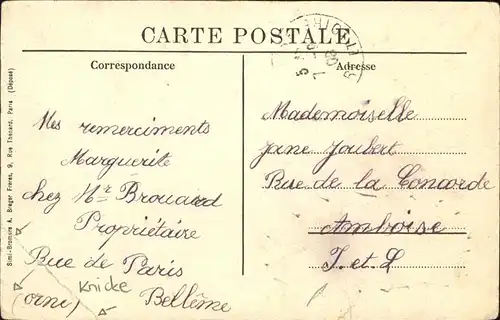 CARTE POSTALE
Correspondance
Adresse
Mes remerciments
Marguerite
chez Mr Brouard
Propriétaire
Rue de Paris
(orne) Bellême
Knicke
Mademoiselle
Jane Joubert
Rue de la Concorde
Amboise
I. et L
Simi-Bromure A. Breger Frères, 9, Rue Thénard, Paris (Déposé)